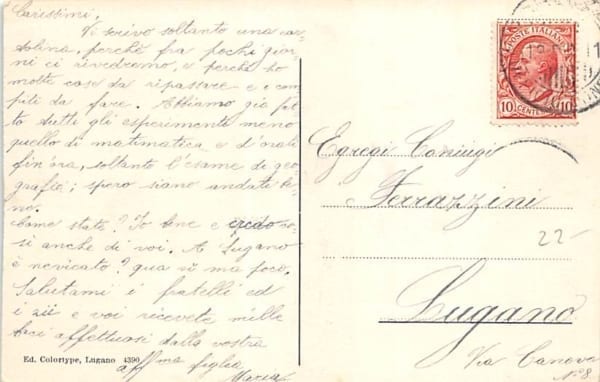 Carissimi,
Vi scrivo soltanto una car-
tolina, perchè fra pochi gior-
ni ci rivedremo, e perchè ho
molte cose da ripassare e com
piti da fare. Abbiamo già fat
to tutti gli esperimenti meno
quello di matematica e d'orali
fin'ora, soltanto l'esame di geo
grafia; spero siano andate be-
no.
Come state? Io bene e credo co-
sì anche di voi. A Lugano
è nevicato? qua sì ma poco.
Salutami i fratelli ed
i zii e voi ricevete mille
baci affettuosi dalla vostra
aff.ma figlia
Maria
Ed. Colortype, Lugano 4390
POSTE ITALIANE
10 CENTESIMI 10
Egregi Coniugi
Ferrazzini
22-
Lugano
Via Canova
N° 8.